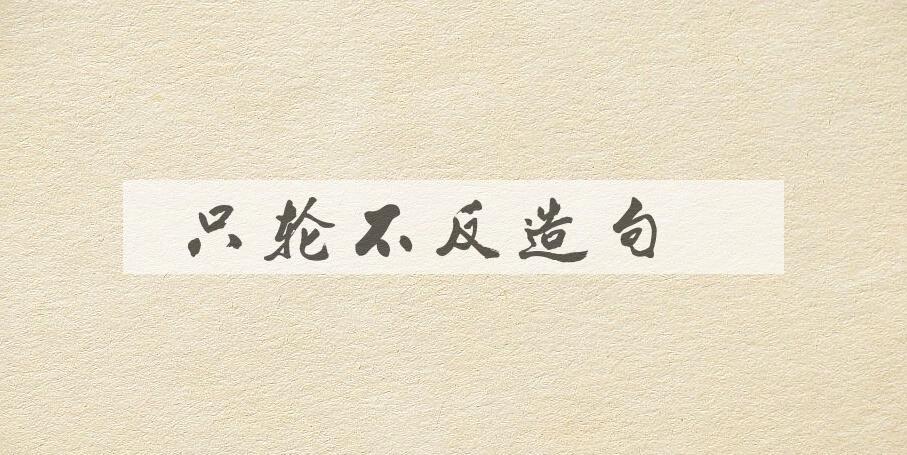 只轮不反造句